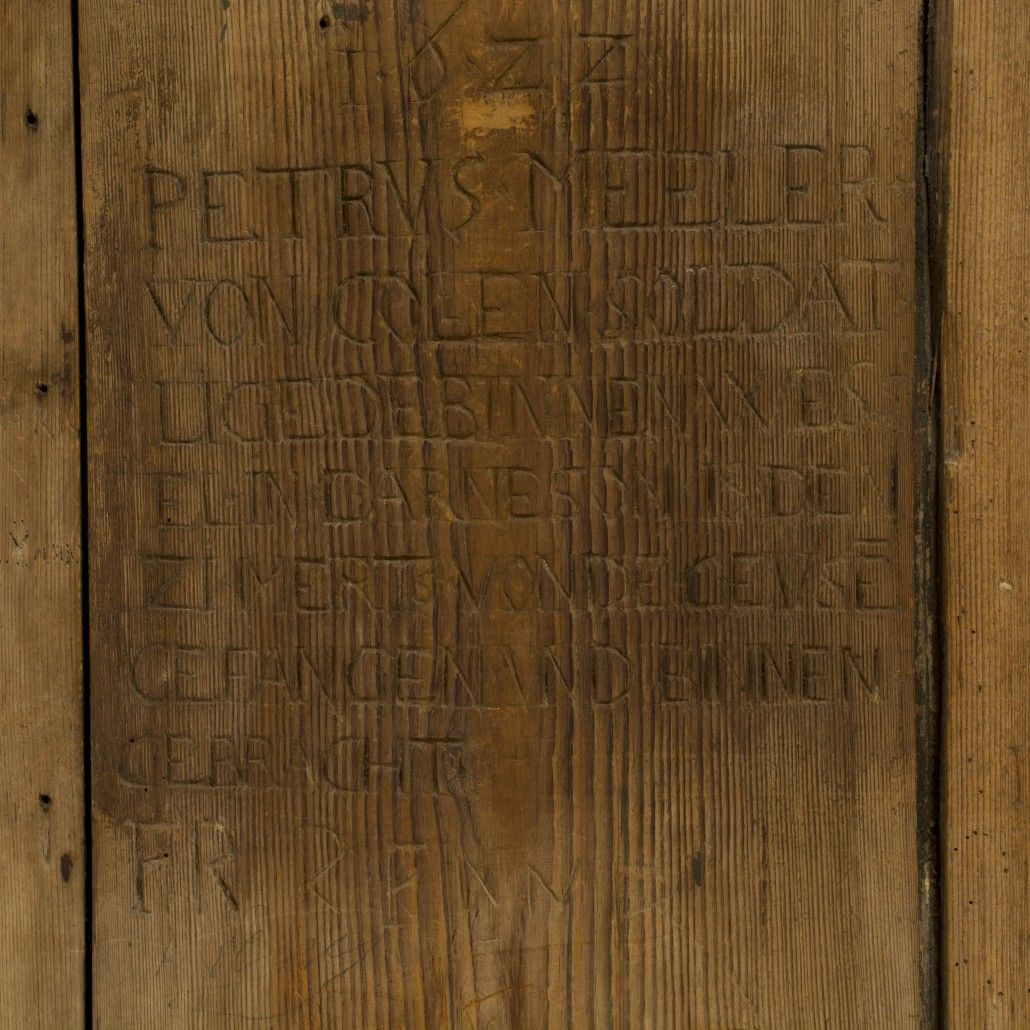 1622
PETRVS MEELER
VON COLEN SOLDAT
LIGEDE BINNEN WES
EL IN GARNESON IS DEN
ZI MERTS VON DE GEVSĒ
GEFANGEN VND BINNEN
GEBRACHT
FR